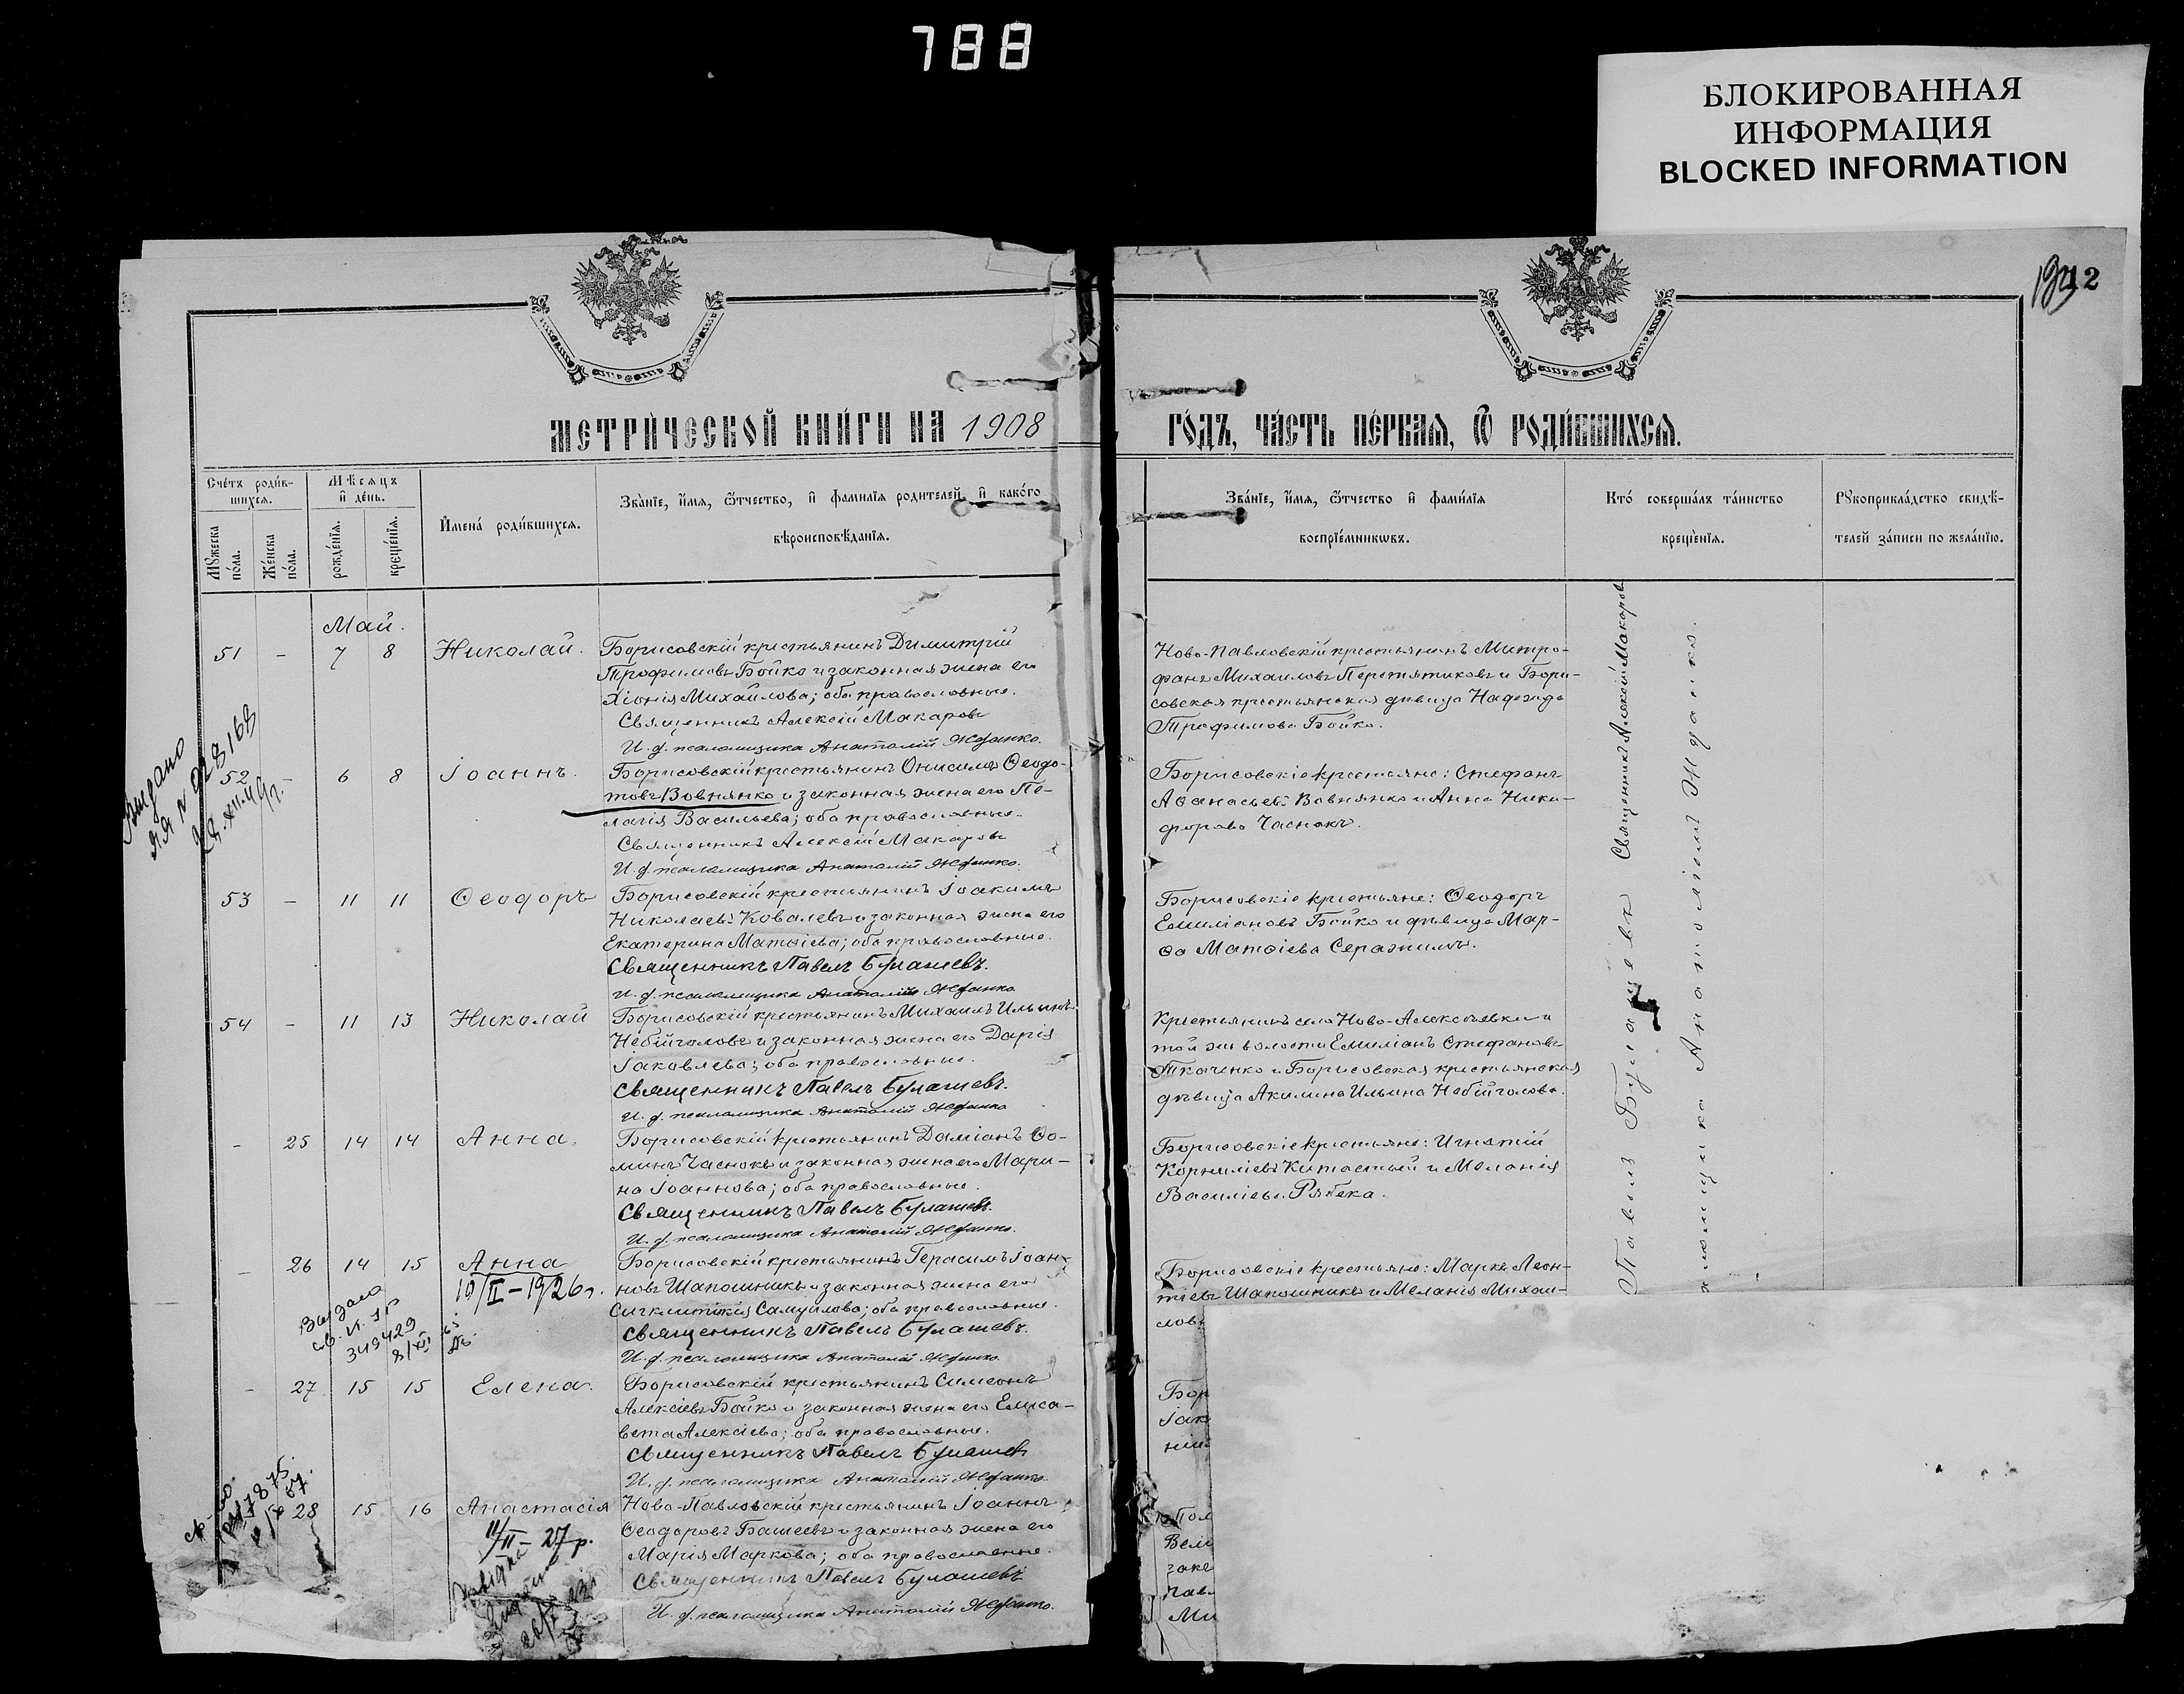 788
БЛОКИРОВАННАЯ
ИНФОРМАЦИЯ
BLOCKED INFORMATION
2
МЕТРИ́ЧЕСКОЙ КНИ́ГИ НА 1908
ГО́ДЪ, ЧА́СТЬ ПЕ́РВАЯ, Ѿ РОДИ́ВШИХСЯ.
Сче́тъ роди́в-
шихся.
Мѣсяцъ
и де́нь.
Мꙋжеска
по́ла.
Же́нска
по́ла.
рожде́нїя.
креще́нїя.
Имена́ роди́вшихся.
Зва́нїе, и́мя, ѻ́тчество, и фамилїя родителей, и како́го
вѣроисповѣ́данїя.
Зва́нїе, и́мя, ѻ́тчество и фами́лїя
воспрїе́мникѡвъ.
Кто́ соверша́лъ та́инство
креще́нїя.
Рꙋкоприкла́дство свидѣ́-
телей за́писи по жела́нїю.
Май.
51 - 7 8 Николай.
Борисовскій крестьянинъ Димитрій
Трофимовъ Бойко и законная жена его
Хіонія Михайлова; оба православные.
Священникъ Алексій Макаровъ
И. д. псаломщика Анатолій Жданко.
Ново-Павловскій крестьянинъ Митро-
фанъ Михаиловъ Перетятиковъ и Бори-
совская крестьянская дѣвица Надежда
Трофимова Бойко.
Выдано
52 - 6 8 Іоаннъ.
Борисовскій крестьянинъ Онисимъ Ѳеодо-
товъ Вовнянко и законная жена его Пе-
лагія Васильева; оба православные.
Священникъ Алексій Макаровъ
И. д. псаломщика Анатолій Жданко.
Борисовскіе крестьяне: Стефанъ
Аѳанасьевъ Вовнянко и Анна Ники-
форова Часнокъ.
53 - 11 11 Ѳеодоръ
Борисовскій крестьянинъ Іоакимъ
Николаевъ Ковалевъ и законная жена его
Екатерина Матѳіева; оба православные.
Священникъ Павелъ Булашевъ.
И. д. псаломщика Анатолій Жданко
Борисовскіе крестьяне: Ѳеодоръ
Емиліановъ Бойко и дѣвица Мар-
ѳа Матѳіева Сережимъ.
54 - 11 13 Николай
Борисовскій крестьянинъ Михаилъ Ильинъ
Небійголова и законная жена его Дарія
Іаковлева; оба православные.
Священникъ Павелъ Булашевъ.
И. д. псаломщика Анатолій Жданко
Крестьянинъ села Ново-Алексѣевки и
той же волости Емиліанъ Стефановъ
Ткаченко и Борисовская крестьянская
дѣвица Акилина Ильина Небійголова.
- 25 14 14 Анна.
Борисовскій крестьянинъ Даміанъ Ѳо-
минъ Часнокъ и законная жена его Мари-
на Іоаннова; оба православные.
Священникъ Павелъ Булашевъ.
И. д. псаломщика Анатолій Жданко.
Борисовскіе крестьяне: Игнатій
Корниліевъ Китастый и Меланія
Василіева Рябека.
- 26 14 15 Анна
10/II-1926г.
349429
Борисовскій крестьянинъ Герасимъ Іоан-
новъ Шапошникъ и законная жена его
Сигклитикія Самуйлова; оба православные.
Священникъ Павелъ Булашевъ.
И. д. псаломщика Анатолій Жданко.
Борисовскіе крестьяне: Марко Леон-
тіевъ Шапошникъ и Меланія Михаи-
лов
- 27 15 15 Елена.
Борисовскій крестьянинъ Симеонъ
Алексіевъ Бойко и законная жена его Елиса-
вета Алексіева; оба православные.
Священникъ Павелъ Булашевъ
И. д. псаломщика Анатолій Жданко.
Бор
Іак
28 15 16 Анастасія
11/II-27р.
Ново-Павловскій крестьянинъ Іоаннъ
Ѳеодоровъ Башеевъ и законная жена его
Марія Маркова; оба православные.
Священникъ Павелъ Булашевъ
И. д. псаломщика Анатолій Жданко.
Вели
зак
Пав
Ми
Священникъ Алексій Макаровъ
Павелъ Булашевъ
псаломщика Анатолій Жданко.